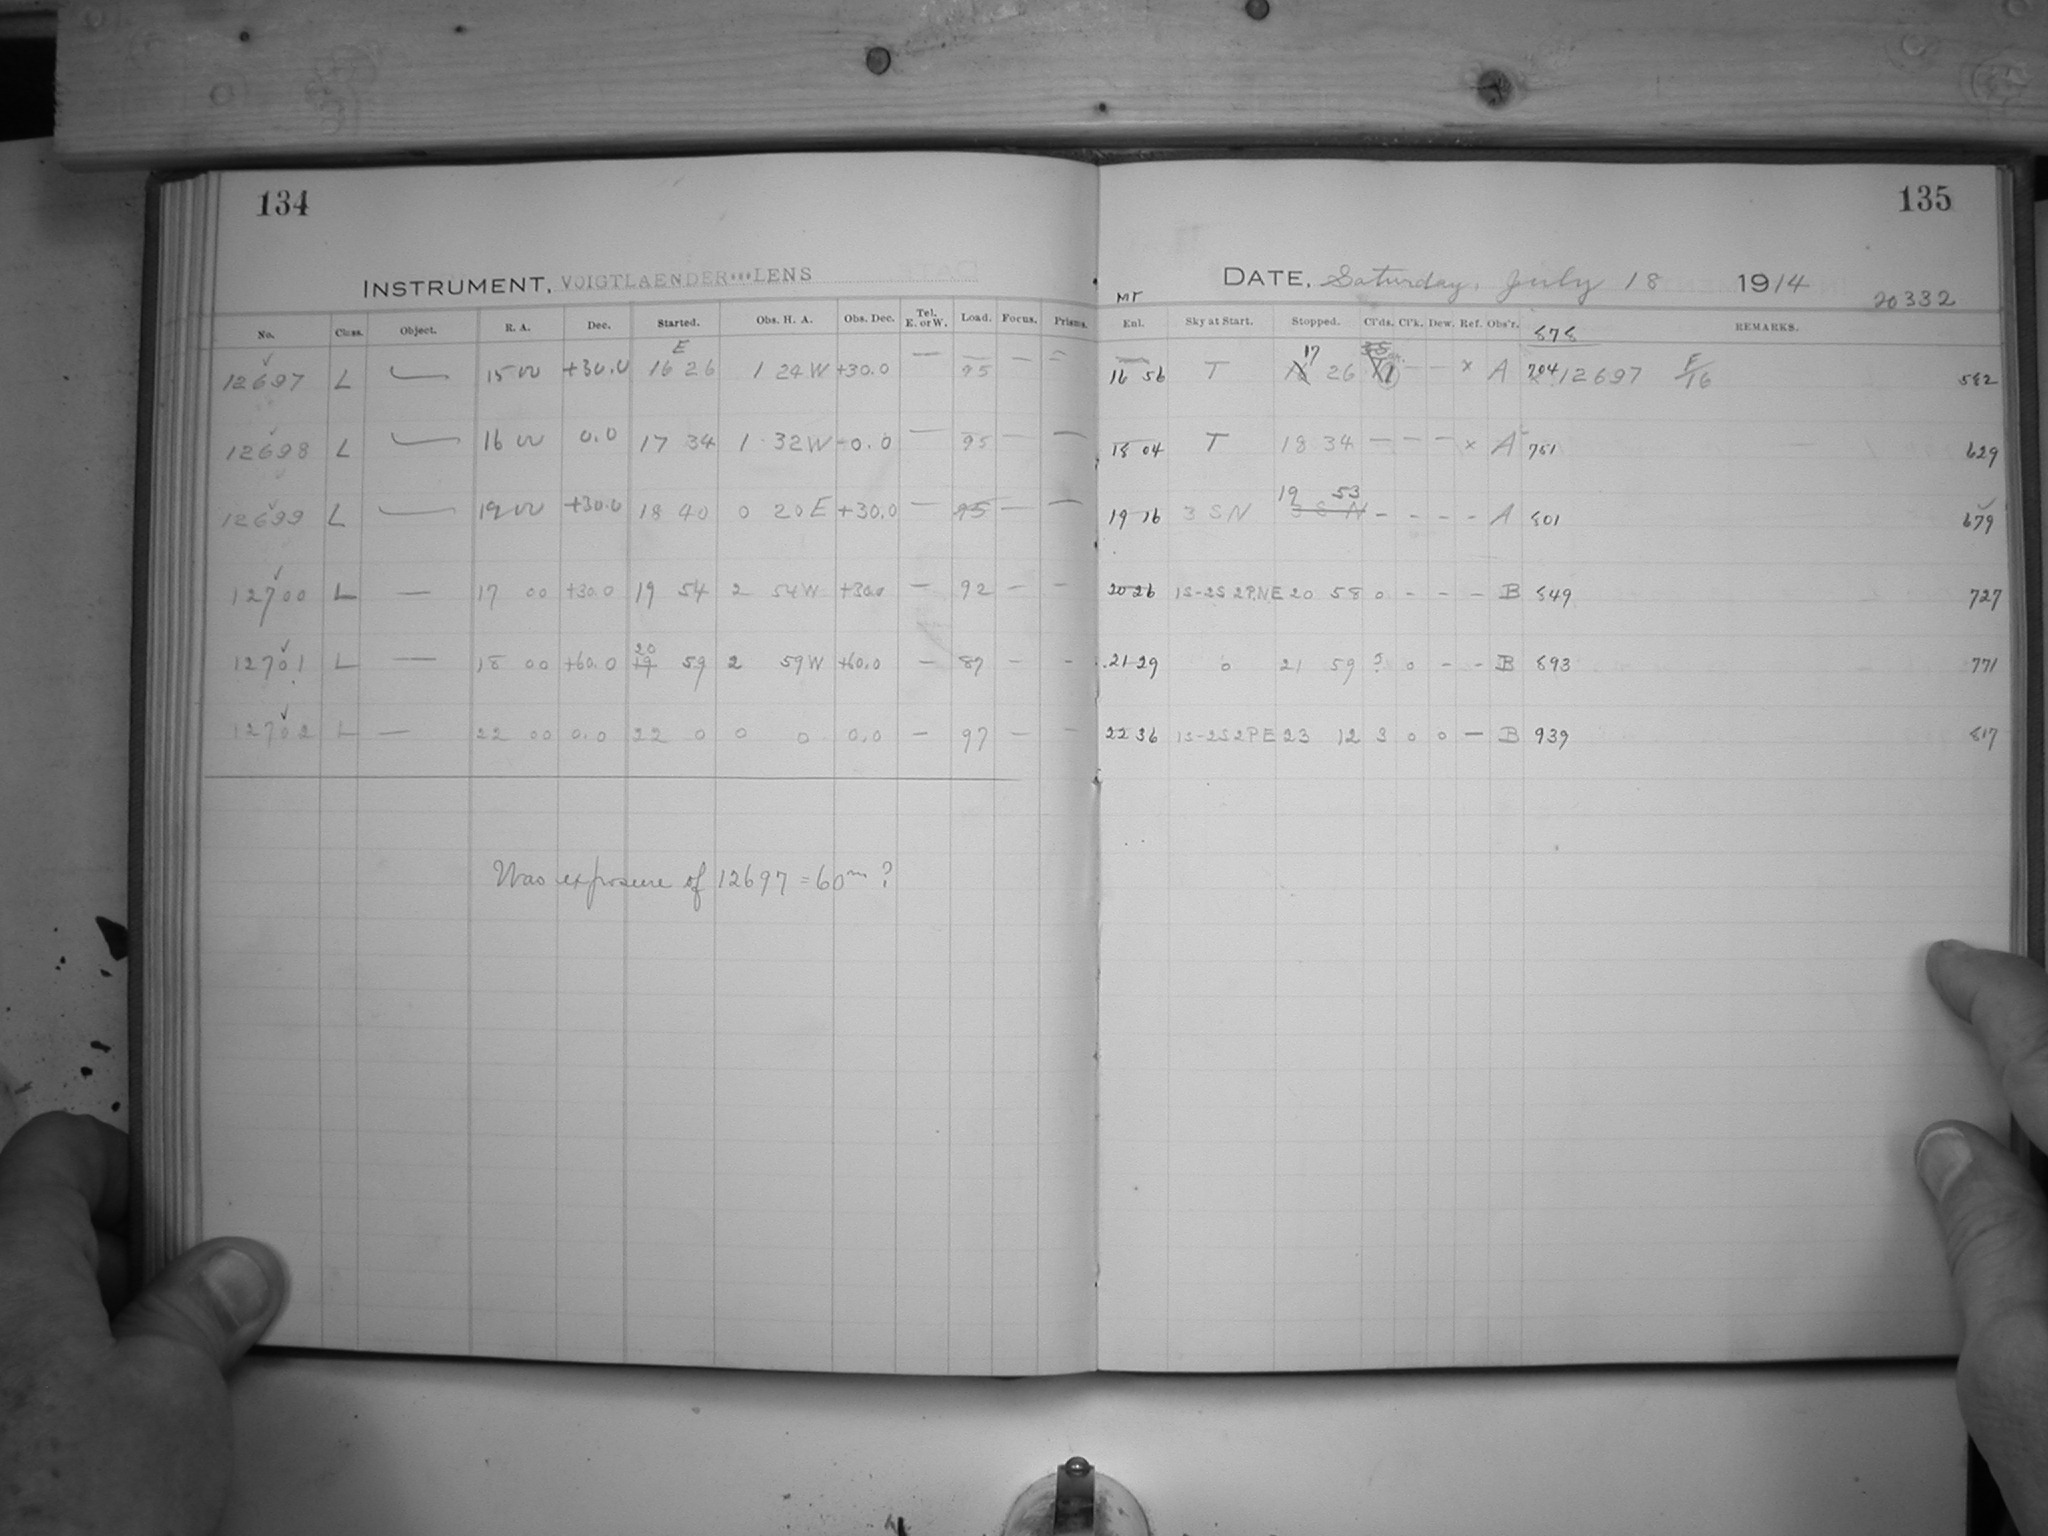 134
INSTRUMENT, VOIGTLAENDER LENS
No. Class. Object. R. A. Dec. Started. Obs. H. A. Obs. Dec. Tel. E. or W. Load. Focus. Prisms.
E
12697 L 15 00 +30.0 16 26 1 24 W +30.0 — 95 — —
12698 L 16 00 0.0 17 34 1 32 W 0.0 — 95 — —
12699 L 19 00 +30.0 18 40 0 20 E +30.0 — 95 — —
12700 L — 17 00 +30.0 19 54 2 54 W +30.0 — 92 — —
20
12701 L — 18 00 +60.0 19 59 2 59 W +60.0 — 87 - -
12702 L — 22 00 0.0 22 0 0 0 0.0 — 97 — -
Was exposure of 12697 = 60m ?
135
DATE, Saturday, July 18 1914
MT
20332
Enl. Sky at Start. Stopped. Cl'ds. Cl'k. Dew. Ref. Obs'r. REMARKS.
878
17
16 56 T 26 — — x A 704 12697 F/16 582
18 04 T 18 34 — — — x A 751 629
19 53
19 16 3 S N 3 S N - - - - A 801 679
20 26 1S-2S 2P.NE 20 58 0 - - - B 849 727
21 29 0 21 59 ? 0 - - B 893 771
22 36 1S-2S 2PE 23 12 3 0 0 — B 939 817